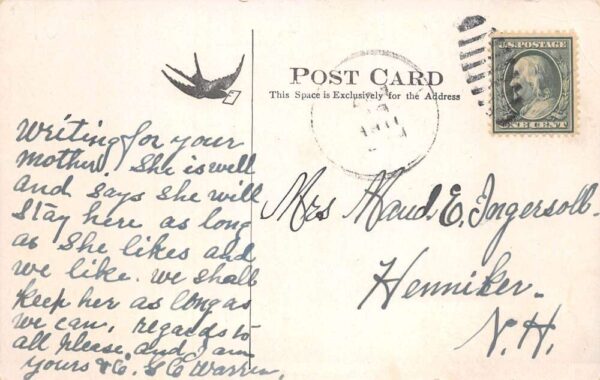 POST CARD
This Space is Exclusively for the Address
U.S. POSTAGE
ONE CENT
Writing for your
mother. She is well
and says she will
stay here as long
as she likes and
we like. we shall
keep her as long as
we can, regards to
all please, and I am
yours &c. G C Warren,
Mrs Maud E. Ingersoll.
Henniker.
N.H.